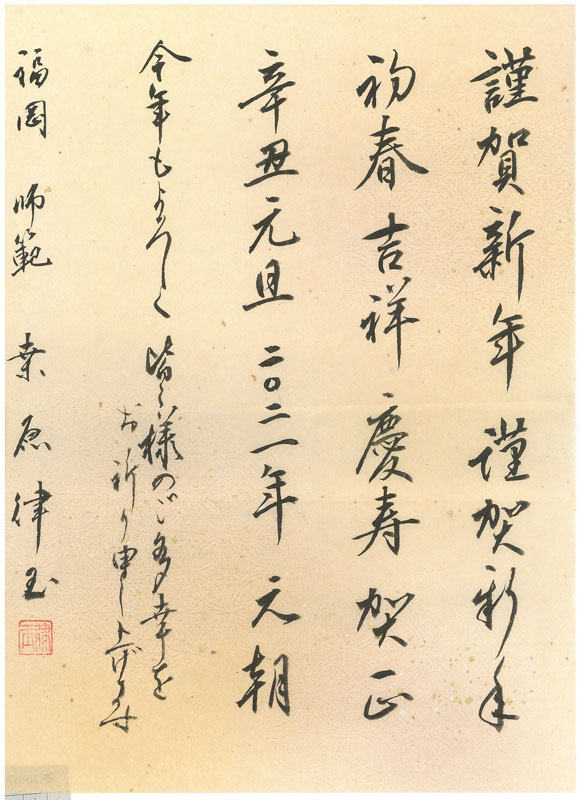 謹賀新年 謹賀新年
初春 吉祥 慶寿 賀正
辛丑元旦 二〇二一年 元朝
今年もよろしく 皆々様のご多幸を
お祈り申し上げます
福岡 師範 桒原律玉